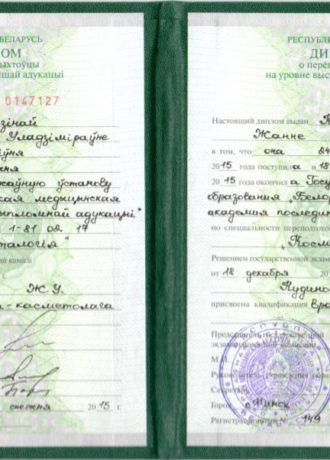 БЕЛАРУСЬ
ОМ
ыхтоўцы
шай адукацыі
0147127
зінай
Уладзіміраўне
ўня
жаўную ўстанову
ская медыцынская
ыпломнай адукацыі"
1-81 02 17
талогія"
най камісіі
Ж.У.
-касметолага
снежня 2015 г.
РЕСПУБЛИ
ДИ
о перепо
на уровне выс
Настоящий диплом выдан
Жанне
в том, что она 24
2015 года поступила и 18
2015 года окончила Госу
образования „Белор
академия последи
по специальности переподгот
„Косм
Решением государственной экзаме
от 18 декабря
Кудино
присвоена квалификация Вра
Председатель государственной
экзаменационной комиссии
М.П.
Руководитель учреждения образ
Секретарь
Город г. Минск
Регистрационный № 149